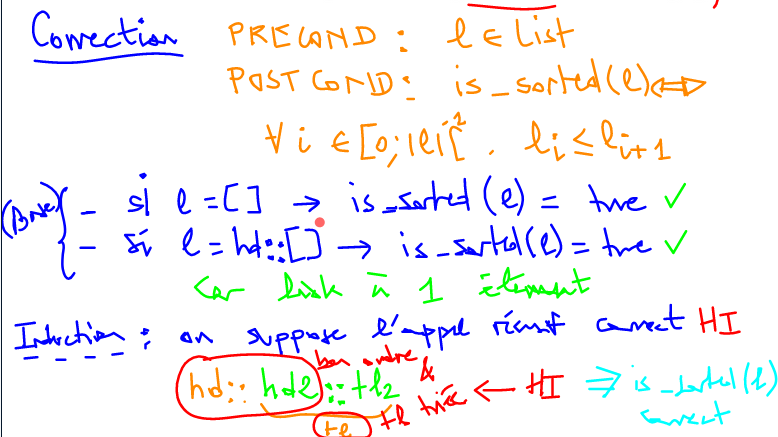 Correction PRECOND : l ∈ List
POSTCOND : is_sorted(l) ⇔
∀ i ∈ [0; |l|-1[ . l_i ≤ l_{i+1}
(Base) { - si l = [] → is_sorted (l) = true ✓
- si l = hd::[] → is_sorted(l) = true ✓
car liste à 1 élément
Induction : on suppose l'appel récursif correct HI
bon ordre &
hd:: hd2 :: tl2 tl triée ← HI ⇒ is_sorted(l)
tl correct